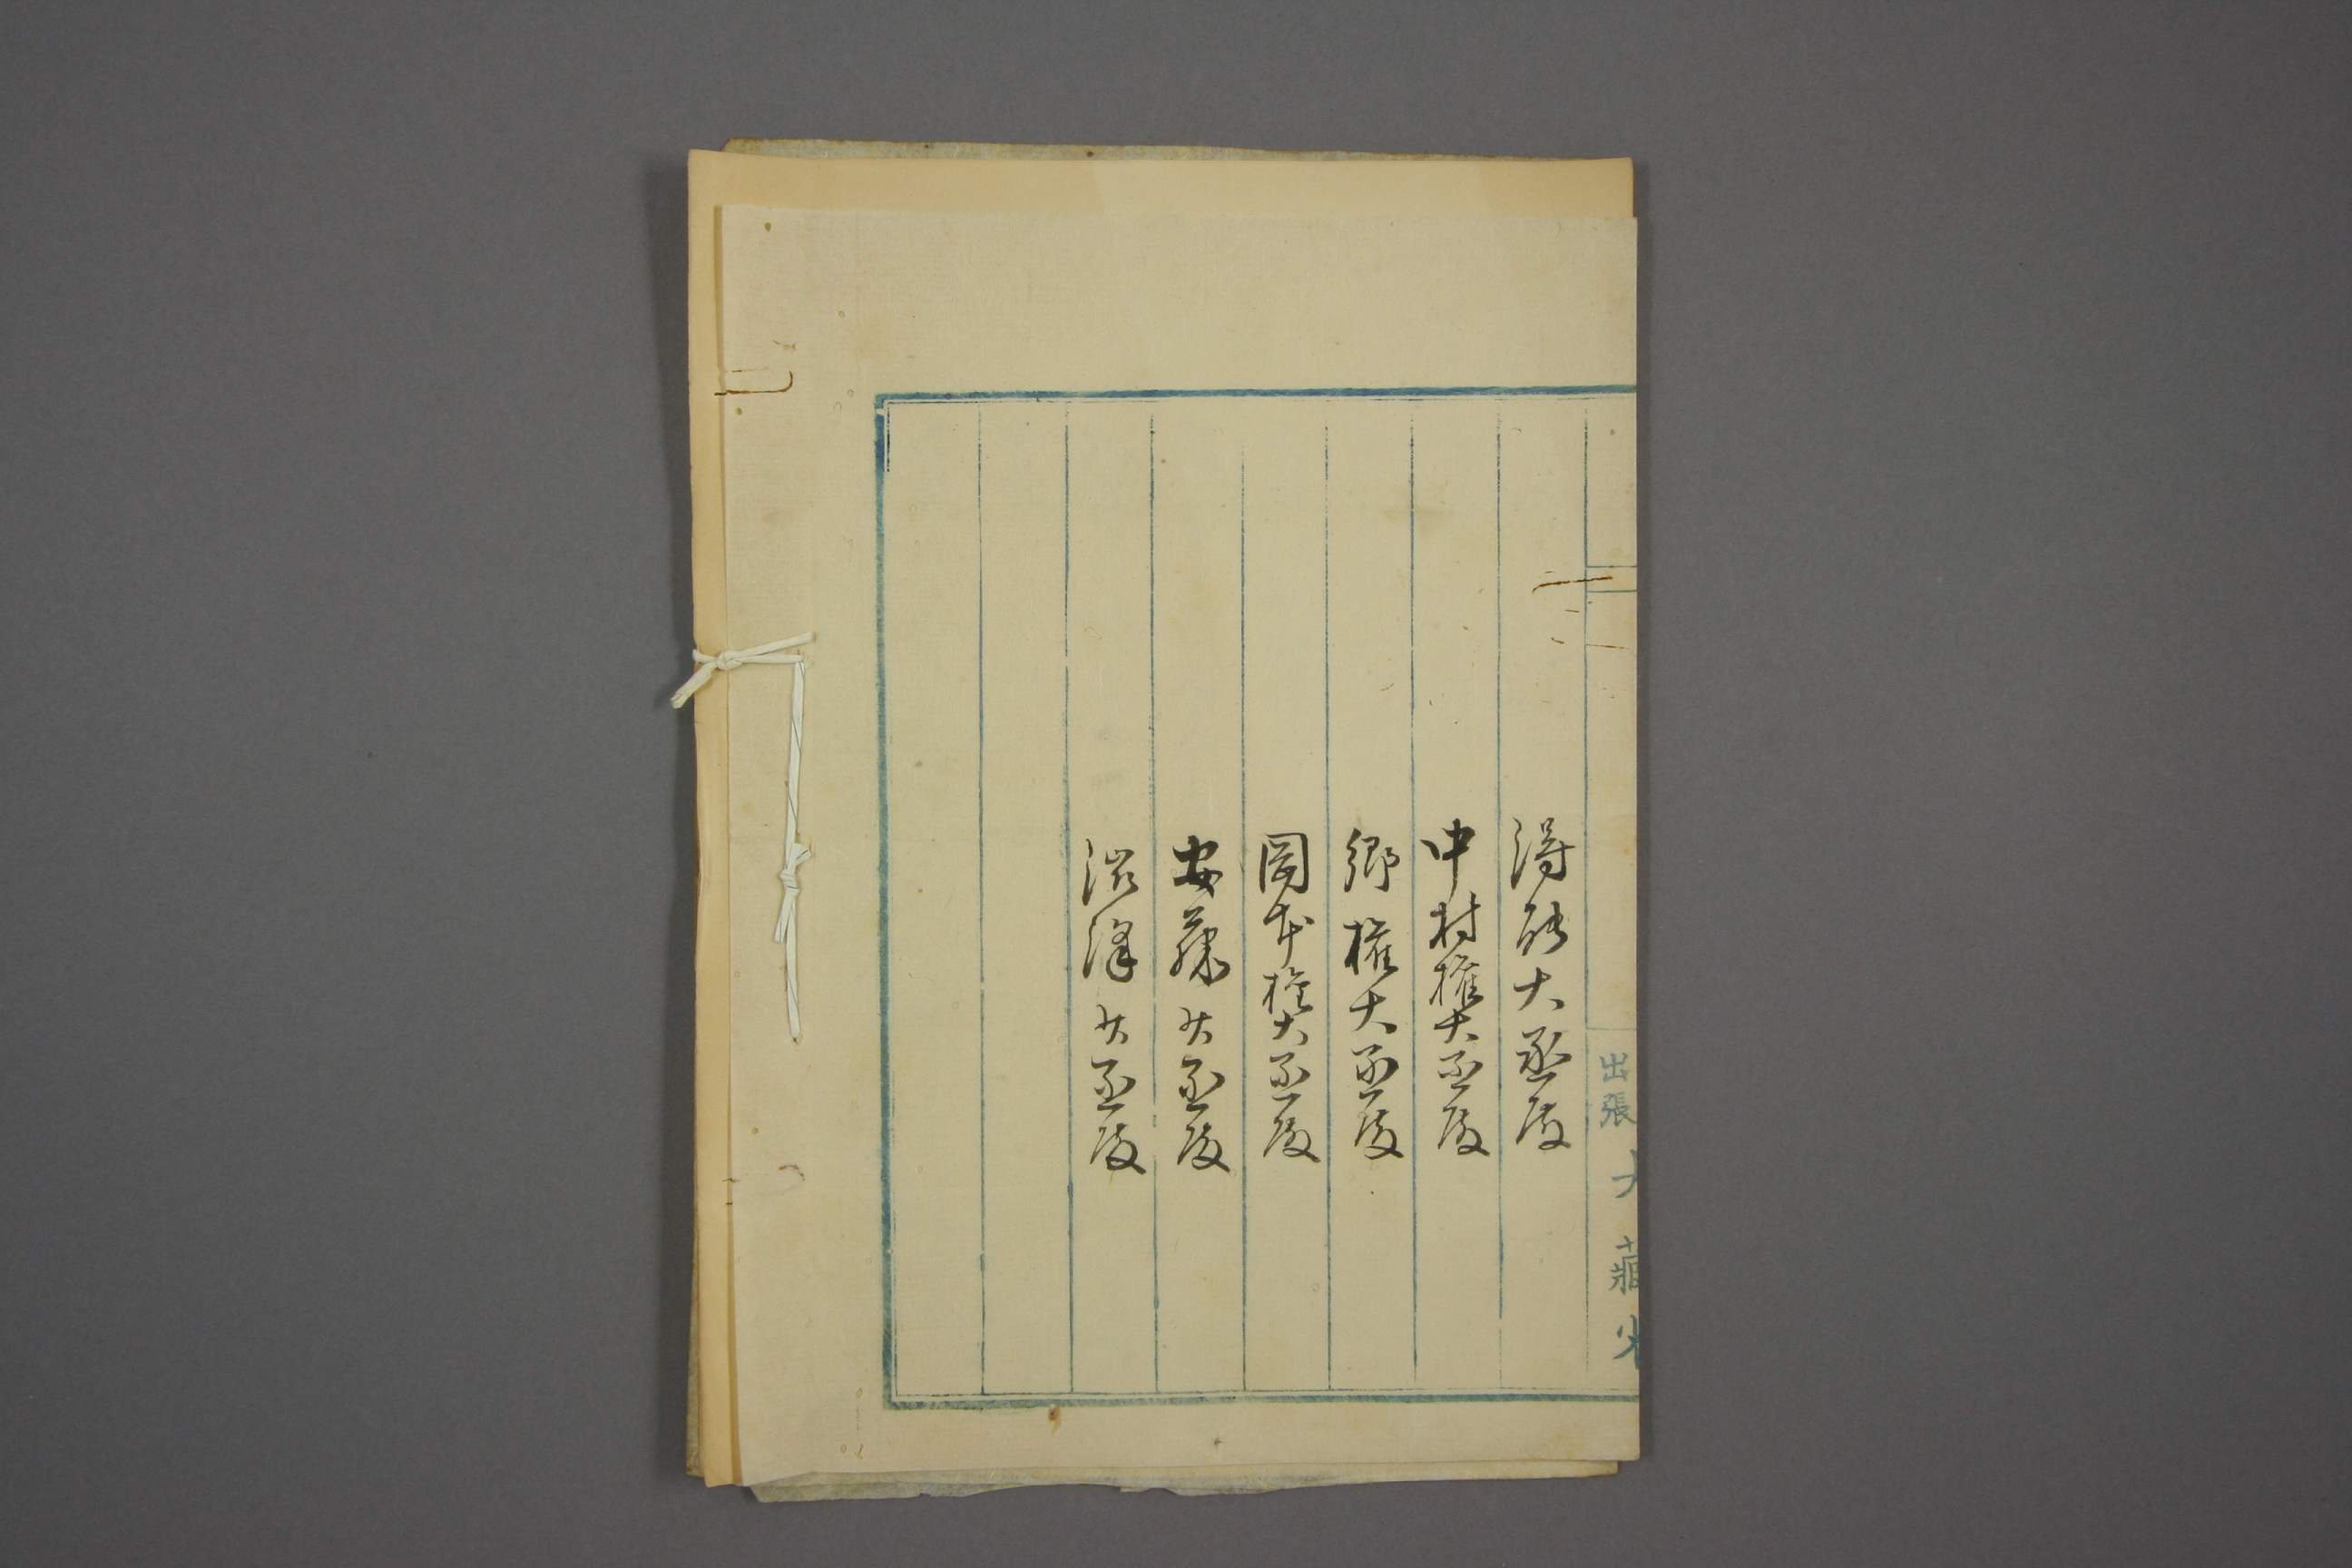 出張 大藏省
得能大丞殿
中村権大丞殿
郷権大丞殿
岡本権大丞殿
安藤少丞殿
澁澤少丞殿